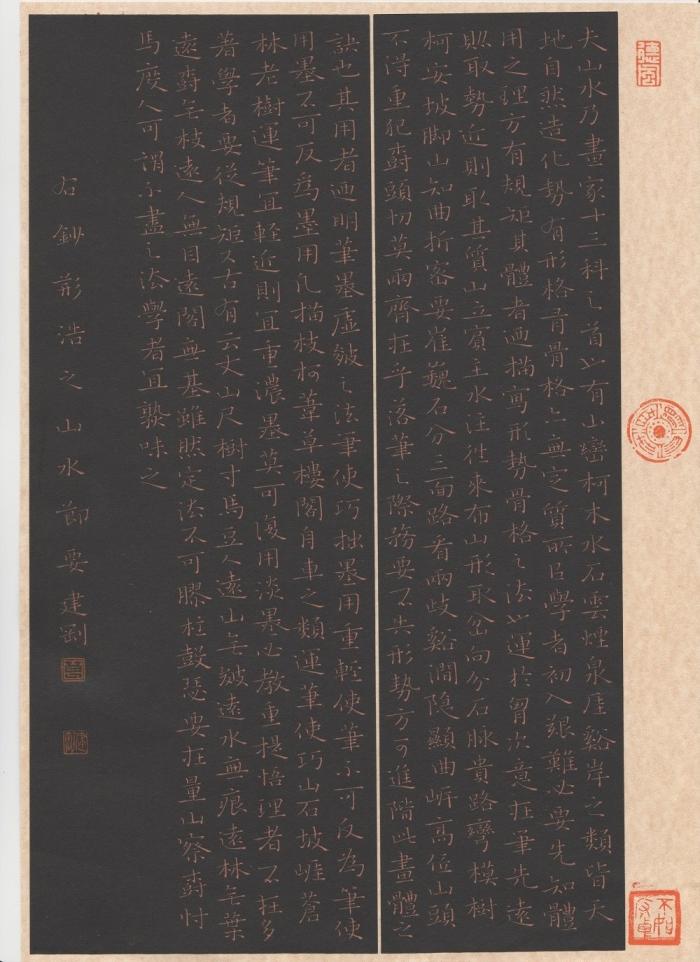 夫山水乃畫家十三科之首也有山巒柯木水石雲煙泉崖谿岸之類皆天
地自然造化勢有形格有骨格亦無定質所以學者初入艱難必要先知體
用之理方有規矩其體者迺描寫形勢骨格之法也運於胸次意在筆先遠
則取勢近則取其質山立賓主水注往來布山形取岔向分石脉貴路彎模樹
柯安坡脚山知曲折密要崔巍石分三面路看兩歧谿澗隱顯曲岍高位山頭
不得重犯樹頭切莫兩齊在乎落筆之際務要不失形勢方可進階此畫體之
訣也其用者迺明筆墨虛皴之法筆使巧拙墨用重輕使筆不可反為筆使
用墨不可反為墨用凡描枝柯葦草樓閣自車之類運筆使巧山石坡崖蒼
林老樹運筆宜輕近則宜重濃墨莫可復用淡墨必教重提悟理者不在多
著學者要從規矩又古有云丈山尺樹寸馬豆人遠山无皴遠水無痕遠林无葉
遠樹无枝遠人無目遠閣無基雖然定法不可膠柱鼓瑟要在量山察樹忖
馬度人可謂不盡之法學者宜熟味之
右鈔荊浩之山水節要建剛